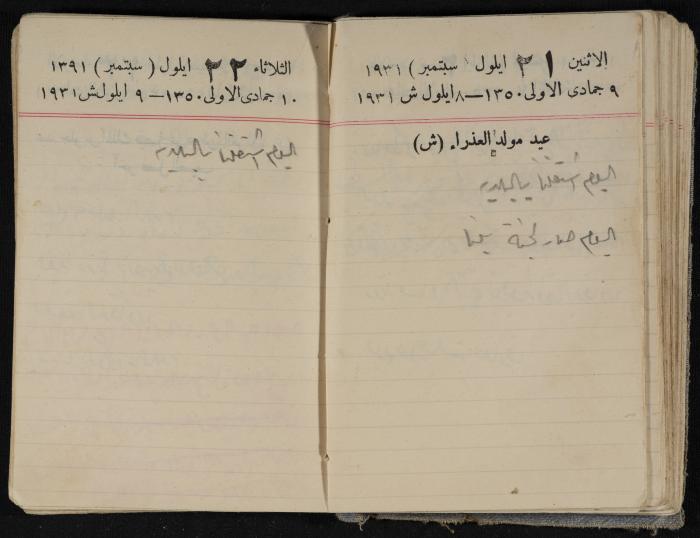 الاثنين ٢١ ايلول (سبتمبر) ١٩٣١
٩ جمادى الاولى ١٣٥٠ — ٨ ايلول ش ١٩٣١
عيد مولد العذراء (ش)
اليوم اشتغلنا بالبلديه
اليوم صار لجنة
الثلاثاء ٢٢ ايلول (سبتمبر) ١٣٩١
١٠ جمادى الاولى ١٣٥٠ — ٩ ايلول ش ١٩٣١
اليوم اشتغلنا بالبلديه